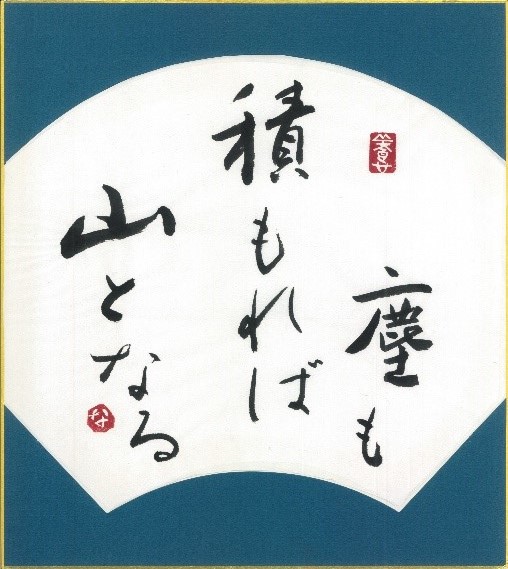 塵も
積もれば
山となる
な